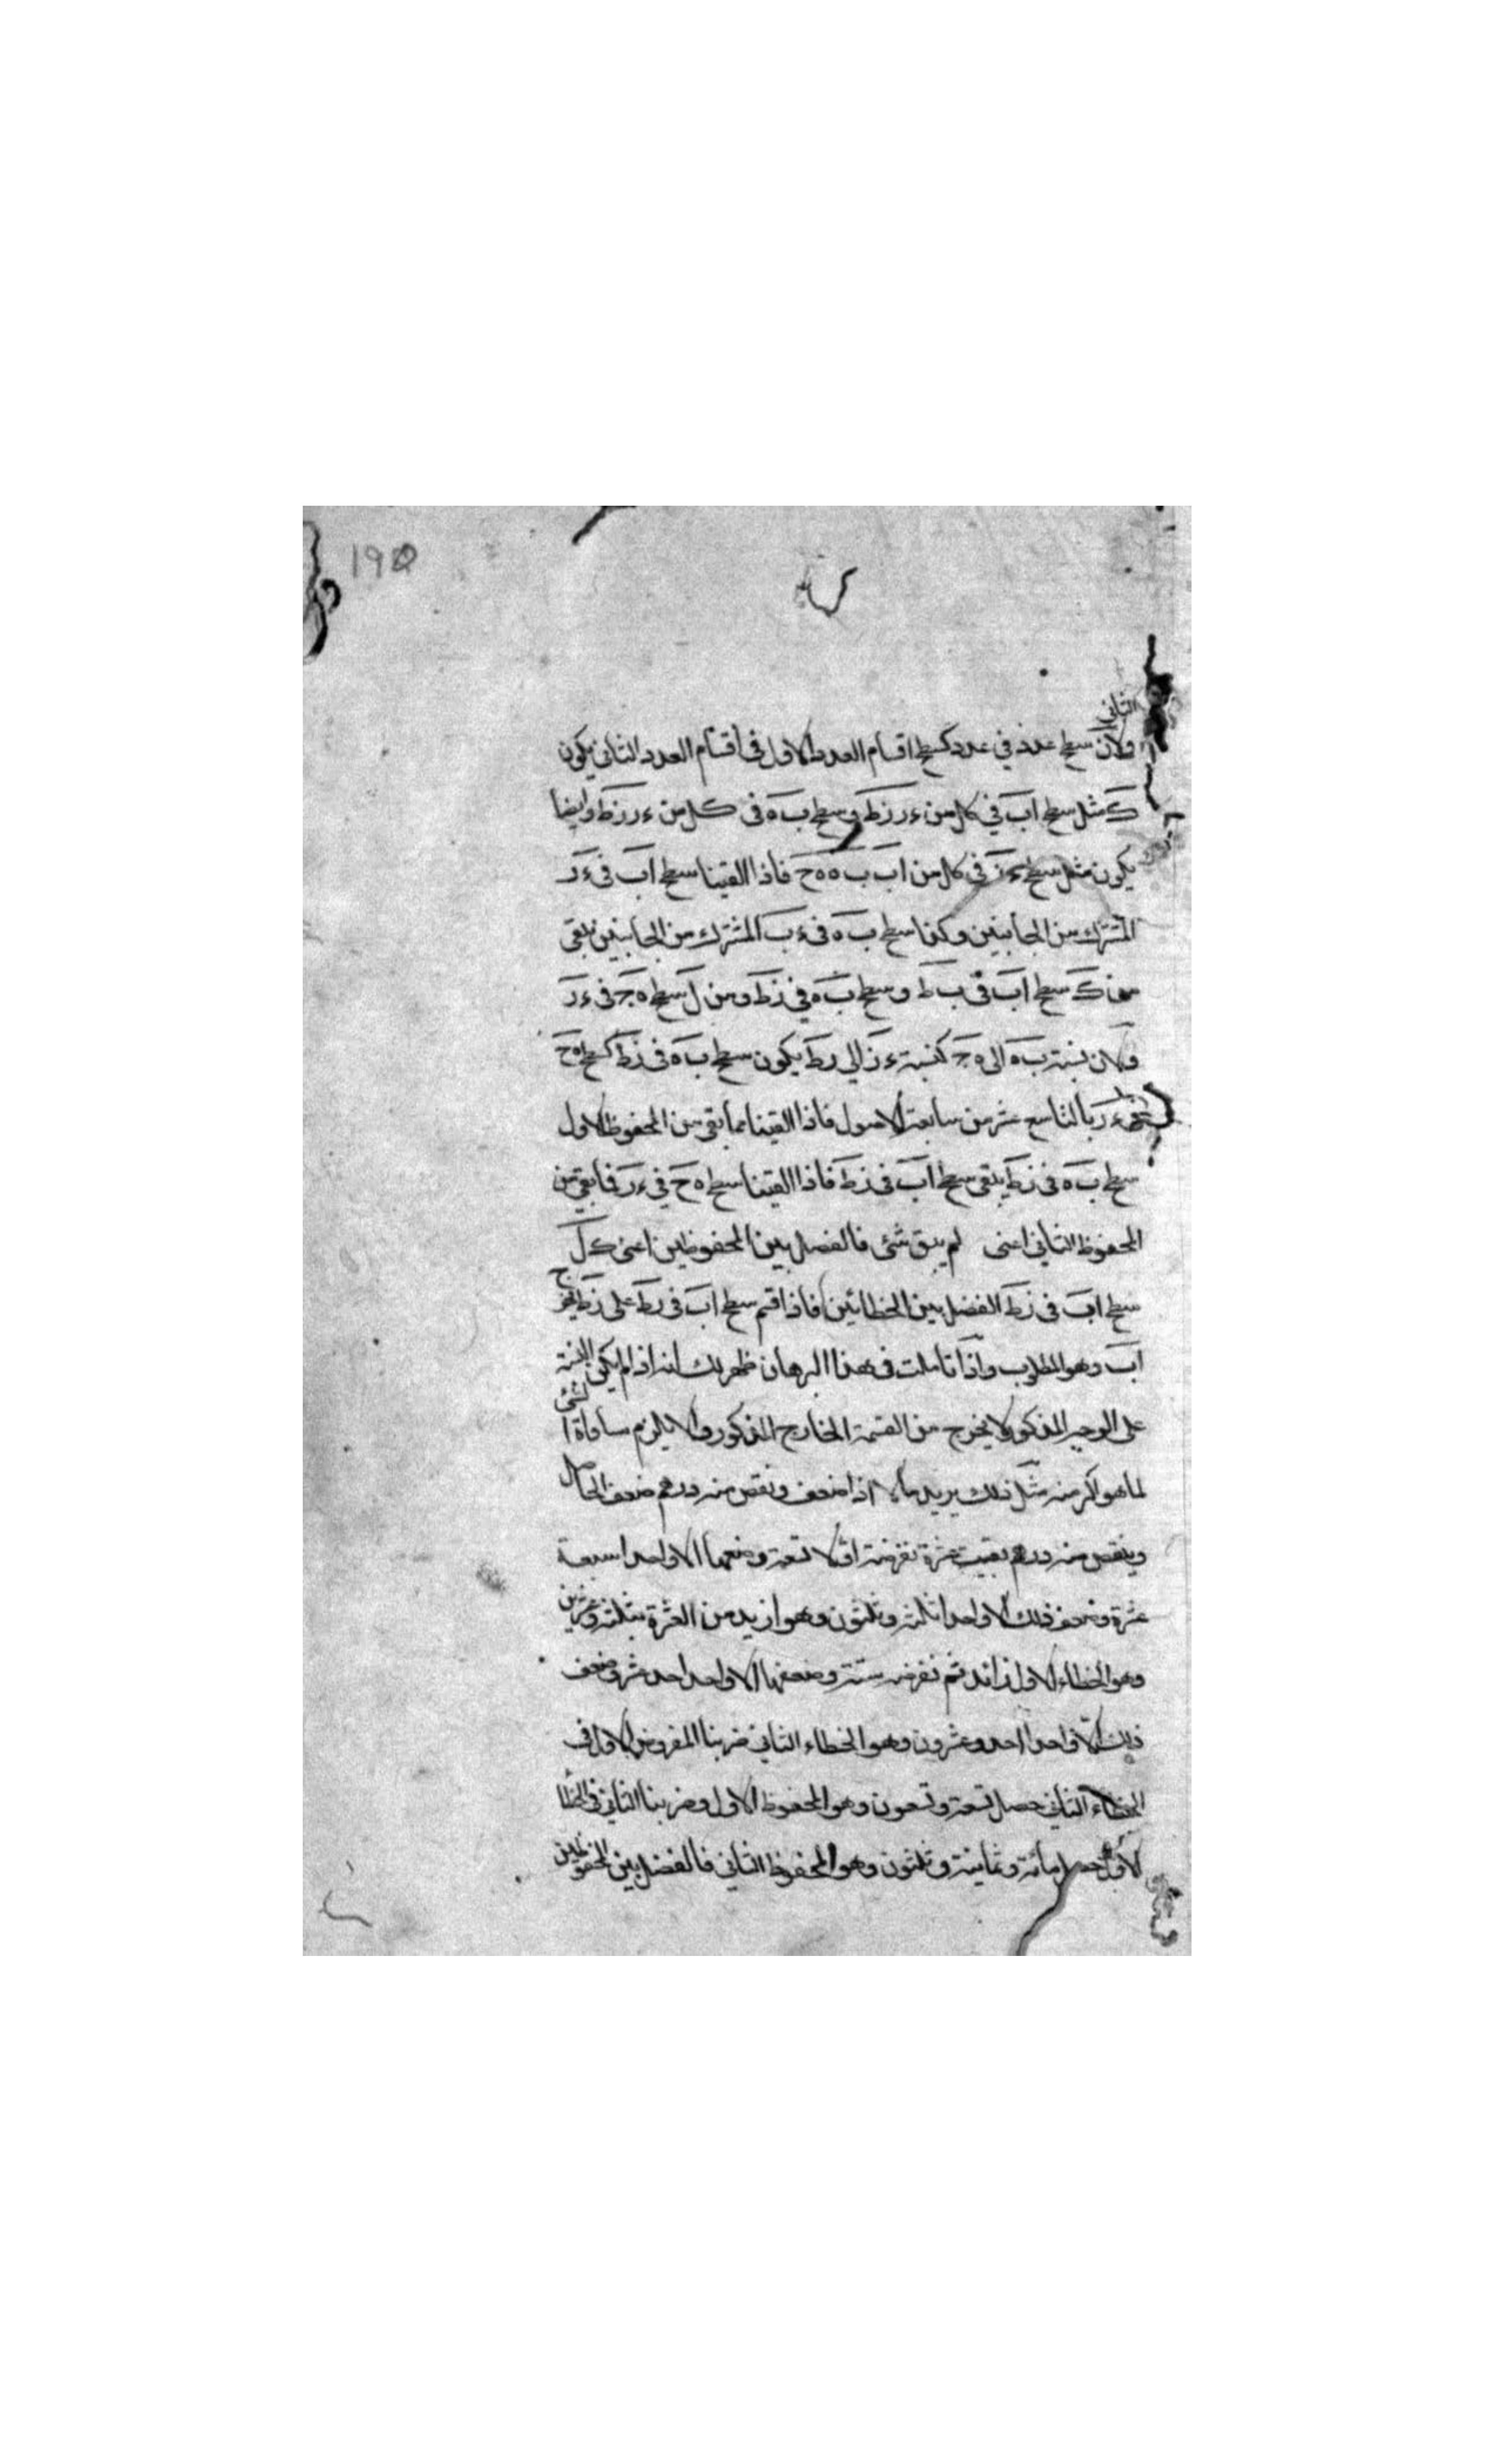 190
الثانى
ولان سطح عدد في عدد كسطح اقسام العدد الاول في اقسام العدد الثاني يكون
ك مثل سطح اب في كل من ءر زط وسطح ب ه في كل من ءر زط وايضا
يكون مثل سطح ءز في كل من اب ب ه ه ح فاذا القينا سطح اب في ءر
المشترك من الجانبين وكذا سطح ب ه في ء ب المشترك من الجانبين يبقى
من ك سطح اب في ب ط وسطح ب ه في زط ومن ل سطح ه ج في ءر
ولان نسبة ب ه الى ه ج كنسبة ءز الى رط يكون سطح ب ه في زط كسطح ه ح
في ءر بالتاسع عشر من سابعة الاصول فاذا القينا مما بقى من المحفوظ الاول
سطح ب ه في زط يبقى سطح اب في زط فاذا القينا سطح ه ح في ءر فما بقي من
المحفوظ الثاني اعنى لم يبق شئ فالفضل بين المحفوظين اعنى ك ل
سطح اب في زط الفضل بين الخطائين فاذا قسم سطح اب في رط على زط يخرج
اب وهو المطلوب واذا تاملت في هذا البرهان ظهر لك انه اذا لم يكن النسبة
على الوجه المذكور لا يخرج من القسمة الخارج المذكور والا يلزم مساواة الشئ
لما هو اكثر منه مثل ذلك يريد مالا اذا ضعف ونقص منه درهم ضعف الحاصل
وينقص منه درهم بقيت عشرة نفرضه اولا تسعة وضعفها الا واحد اسبعة
عشرة وضعف ذلك الا واحدا ثلثة وثلثون وهو ازيد من العشرة بثلثة وعشرين
وهو الخطاء الاول زائد ثم نفرضه ستة وضعفها الا واحد احد عشر وضعف
ذلك الا واحدا احد وعشرون وهو الخطاء الثاني ضربنا المفروض الاول في
الخطاء الثاني حصل تسعة وتسعون وهو المحفوظ الاول وضربنا الثاني في الخطا
الاول حصل مائة وثمانية وثلثون وهو المحفوظ الثاني فالفضل بين المحفوظين